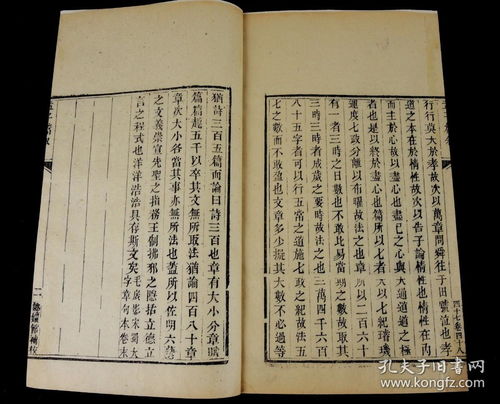 行行莫大於孝故次以萬章問舜往于田號泣也孝
道之本在於情性故次以告子論情性也情性在內
而主於心故以盡心也盡己之心與天道通道之極
者也是以終於盡心也篇所以七者以七紀璿璣
運度七政分離以布曜故法之也章所以二百六十
有一者三時之日數也不敢比易當期之數故取其
三時三時者成歲之要時故法之也三萬四千六百
八十五字者可以行五常之道施七政之紀故法五
七之數而不敢盈也文章多少擬其大數不必過等
猶詩三百五篇而論曰詩三百也章有大小分章賦
篇篇趣五千以卒其文無所取法猶論四百八十章
章次大小各當其事亦無所法也蓋所以佐明六藝
之文義崇宣先聖之指務王制拂邪之隱括立德立
言之程式也洋洋浩浩具存斯文矣
孔夫子旧书网
www.kongfz.com